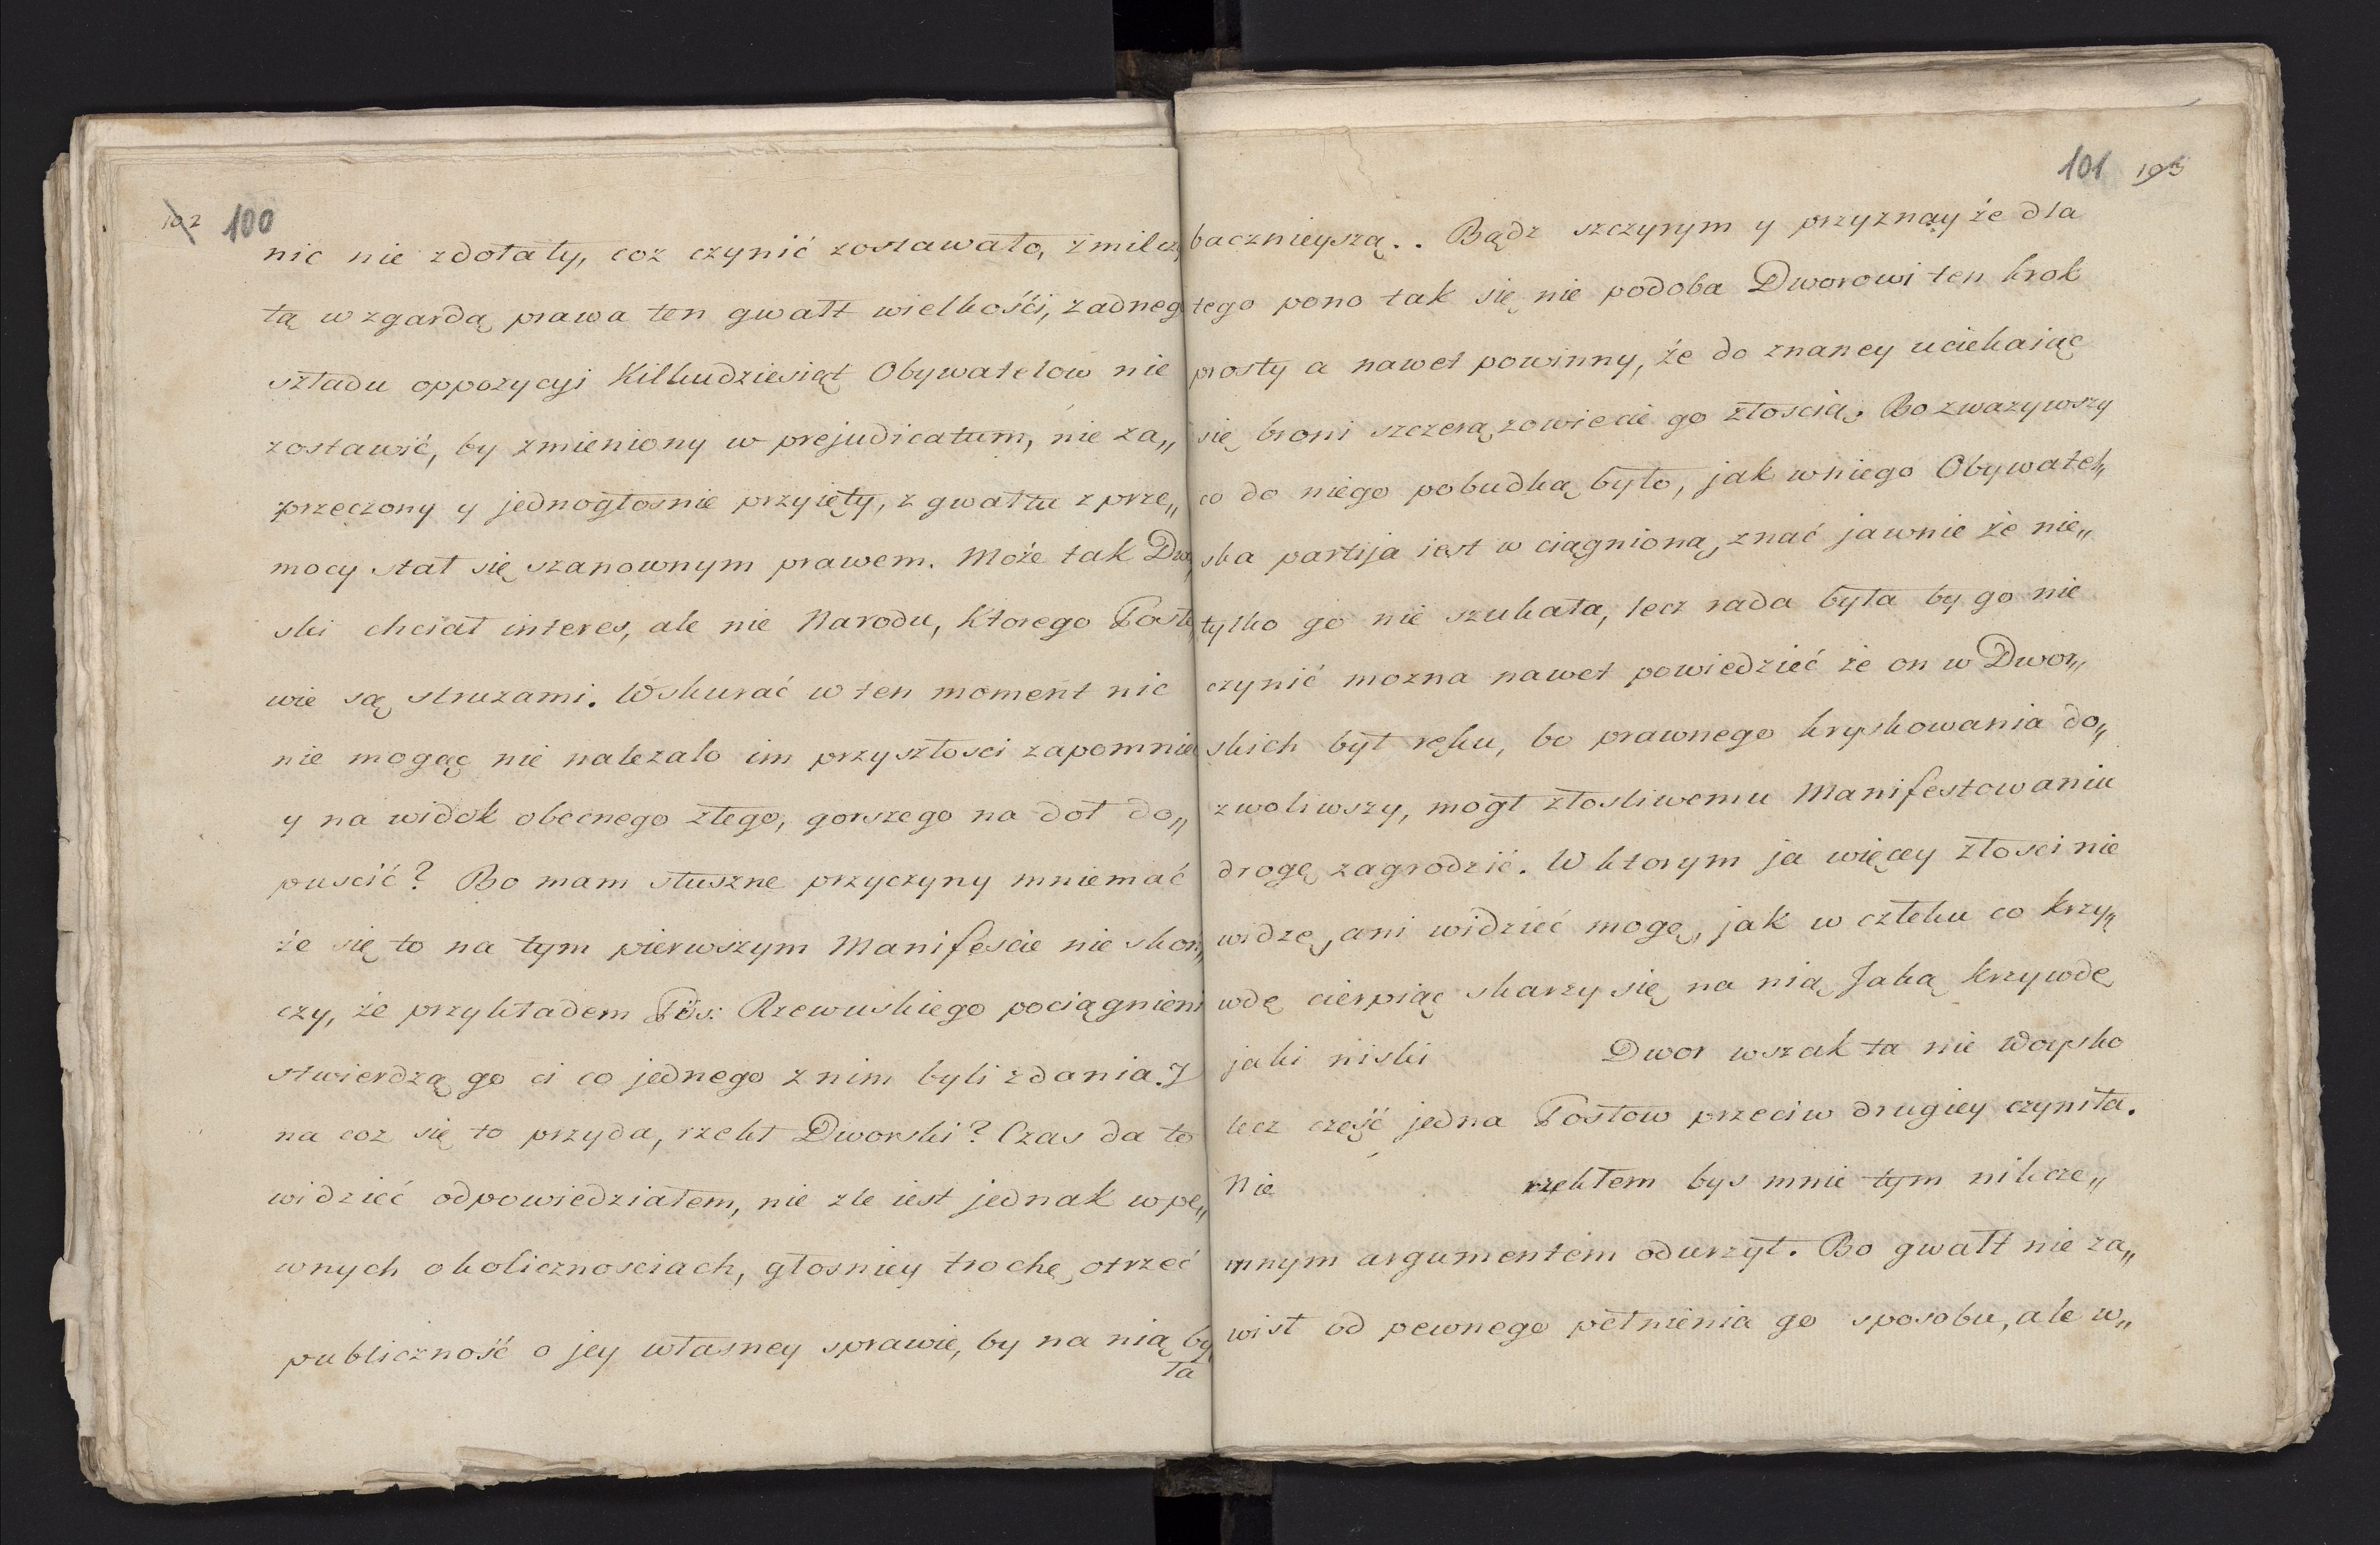 102 100
nic nie zdołały, coz czynić zostawało, zmilczą
tą wzgardą prawa ten gwałt wielkośći, zadneg
szladu oppozycyi Kilkudziesiąt Obywatelow nie
zostawić, by zmieniony w prejudicatum, nie za„
przeczony y jednogłosnie przyięty, z gwałtu z prze„
mocy stał się szanownym prawem. Może tak Dwo„
ski chciał interes, ale nie Narodu, ktorego Posło„
wie są struzami. Wskurać w ten moment nic
nie mogąc nie nalezalo im przyszłosci zapomnie
y na widok obecnego złego, gorszego na doł do„
puscić? Bo mam słuszne przyczyny mniemać
że się to na tym pierwszym Manifescie nie skoń„
czy, że przykładem Pos: Rzewuskiego pociągnieni
stwierdzą go ci co jednego z nim byli zdania. J
na coz się to przyda, rzekł Dworski? Czas da to
widzieć odpowiedziałem, nie zle iest jednak w pe„
wnych okolicznosciach, głosniey trochę ostrzec
publiczność o jey własney sprawie, by na nią by„
ła
101 103
bacznieyszą.. Bądz szczyrym y przyznay że dla
tego pono tak się nie podoba Dworowi ten krok
prosty a nawet powinny, że do znaney uciekaiąc
się broni szczerą zowiecie go złoscią. Bo zwazywszy
co do niego pobudką było, jak w niego Obywatel„
ska partija iest w ciągniona, znać jawnie że nie„
tylko go nie szukała, lecz rada była by go nie
czynić mozna nawet powiedzieć że on w Dwor„
skich był ręku, bo prawnego kryskowania do„
zwoliwszy, mogł złosliwemu Manifestowaniu
drogę zagrodzić. W ktorym ja więcey złosci nie
widzę, ani widzieć mogę, jak w człeku co krzy„
wdę cierpiąc skarzy się na nią Jaką krzywdę
jaki niski Dwor wszak ta nie Woysko
lecz część jedna Posłow przeciw drugiey czyniła.
Nie rzekłem bys mnie tym nikcze„
mnym argumentem odurzył. Bo gwałt nie za„
wisł od pewnego pełnienia go sposobu, ale w„